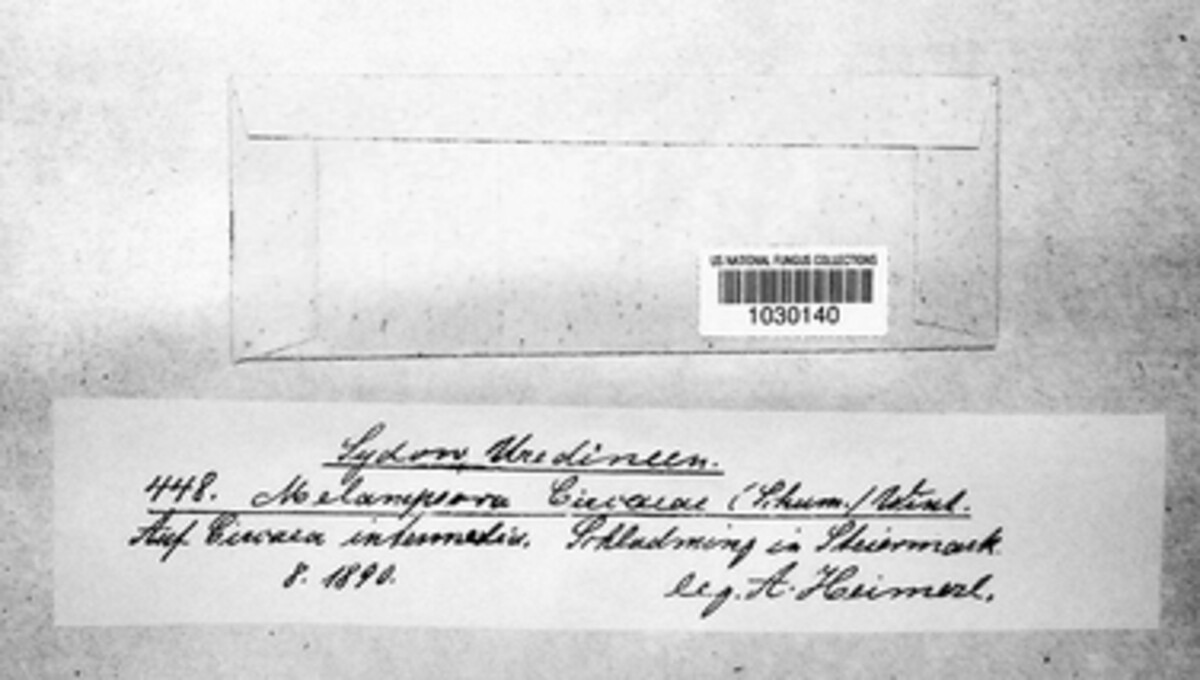 US NATIONAL FUNGUS COLLECTIONS
1030140
Sydow, Uredineen.
448. Melampsora Circaeae (Schum.) Wint.
Auf Circaea intermedia. Schladming in Steiermark
8. 1890. leg. A. Heimerl.